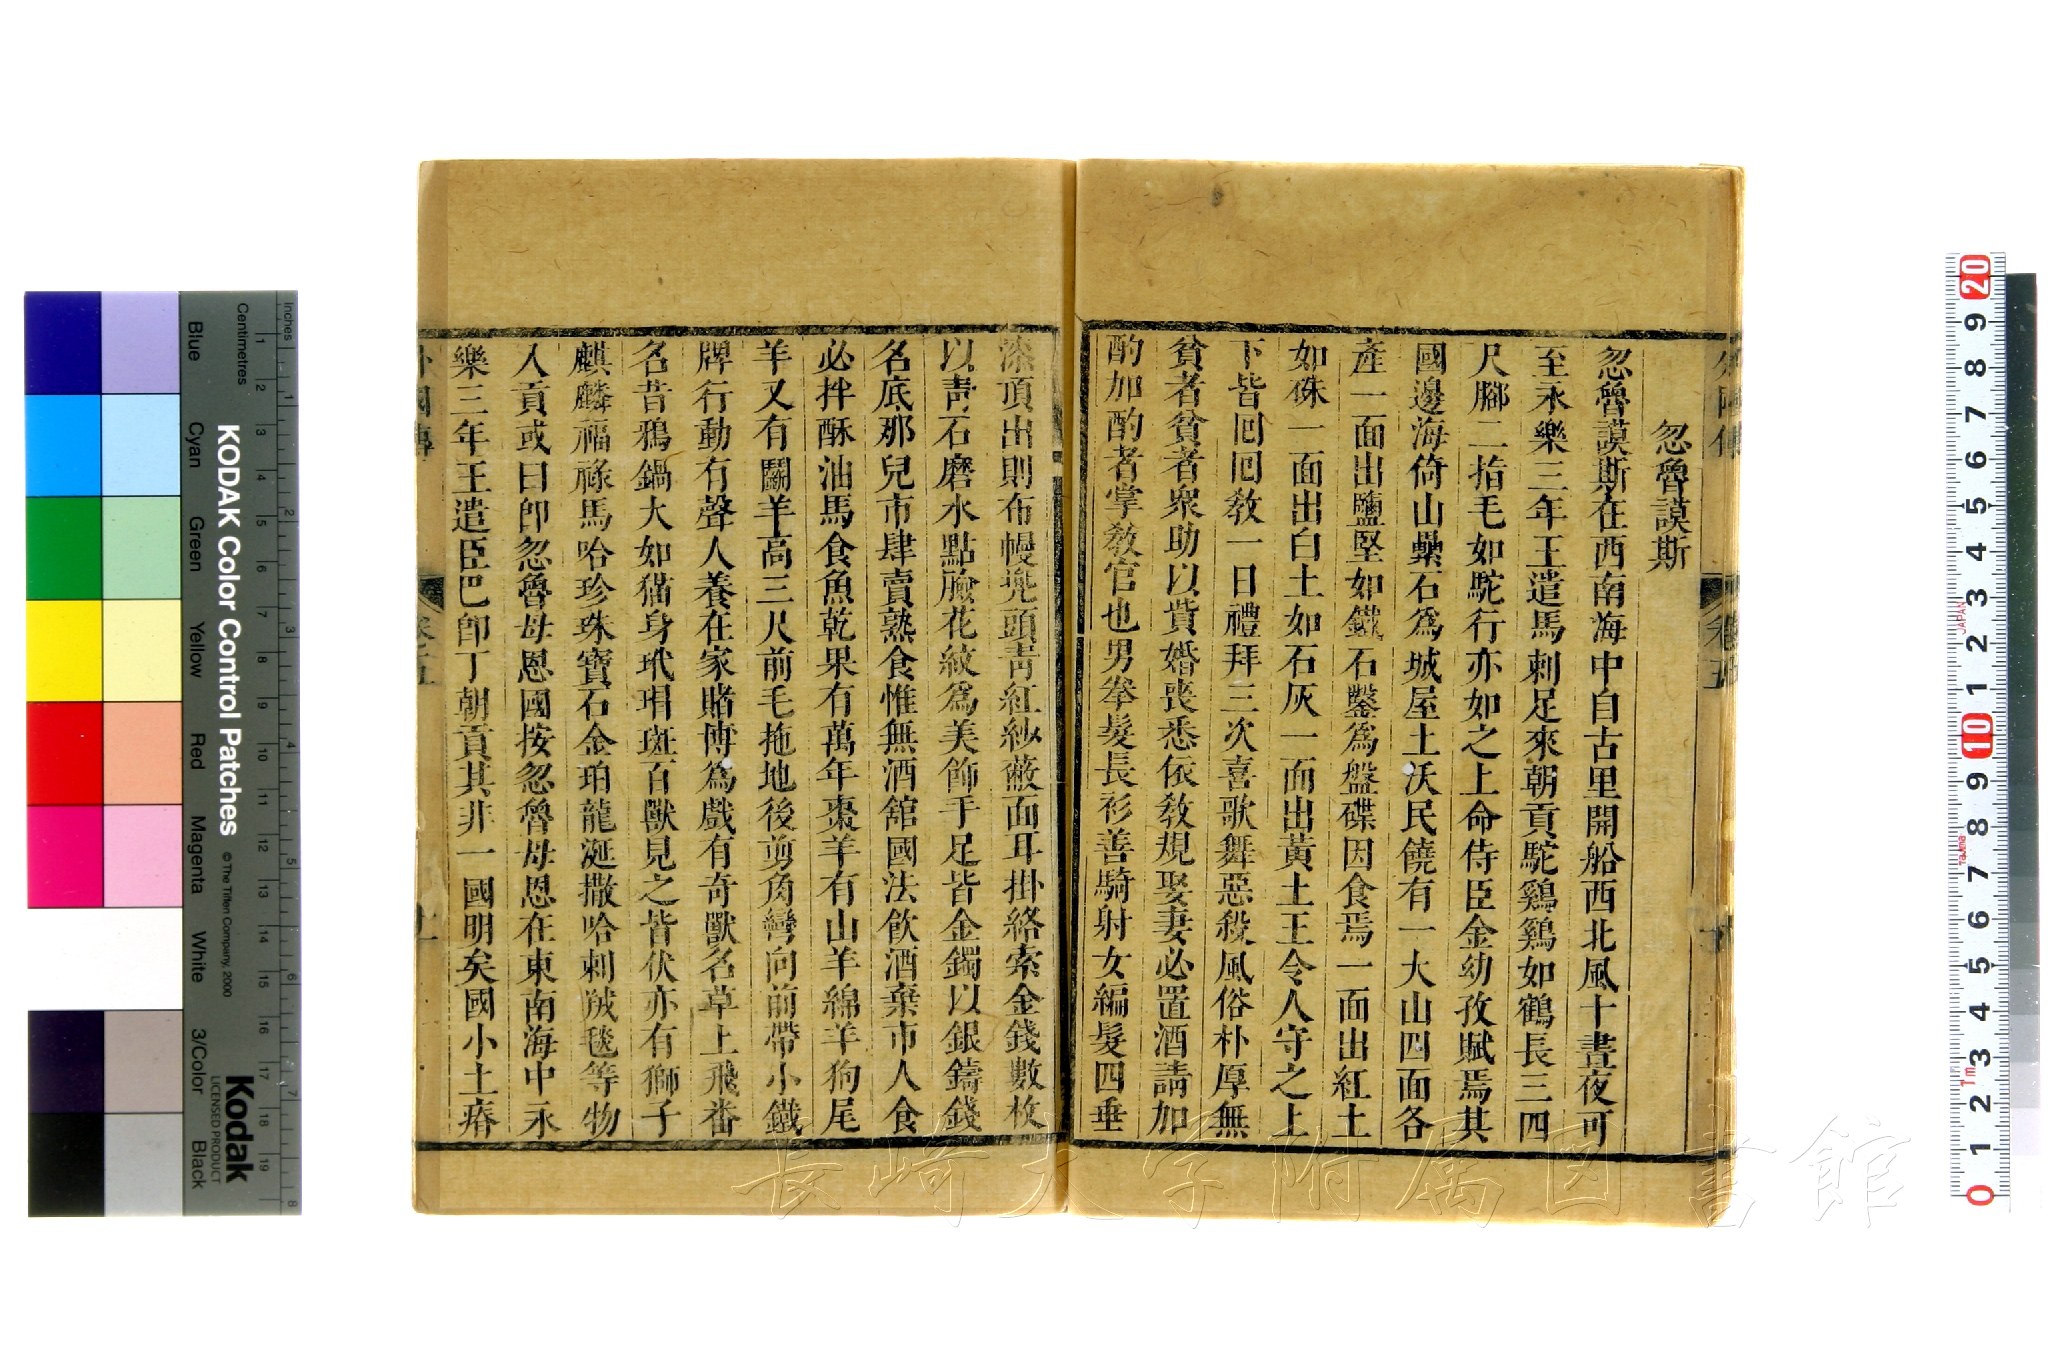 忽魯謨斯
忽魯謨斯在西南海中自古里開船西北風十晝夜可
至永樂三年王遣馬刺足來朝貢駝鷄鷄如鶴長三四
尺腳二指毛如駝行亦如之上命侍臣金幼孜賦焉其
國邊海倚山壘石爲城屋土沃民饒有一大山四面各
產一面出鹽堅如鐵石鑿爲盤碟因食焉一面出紅土
如硃一面出白土如石灰一面出黃土王令人守之上
下皆囘囘敎一日禮拜三次喜歌舞惡殺風俗朴厚無
貧者貧者衆助以貲婚喪悉依敎規娶妻必置酒請加
酌加酌者掌敎官也男拳髮長衫善騎射女編髮四垂
漆頂出則布幔兠頭靑紅紗蔽面耳掛絡索金錢數枚
以靑石磨水點臉花紋爲美飾手足皆金鐲以銀鑄錢
名底那兒市肆賣熟食惟無酒舘國法飮酒棄市人食
必拌酥油馬食魚乾果有萬年棗羊有山羊綿羊狗尾
羊又有鬭羊高三尺前毛拖地後剪角彎向前帶小鐵
牌行動有聲人養在家賭博爲戲有奇獸名草上飛番
名昔鴉鍋大如猫身玳瑁斑百獸見之皆伏亦有獅子
麒麟福祿馬哈珍珠寶石金珀龍涎撒哈剌羢毯等物
入貢或曰卽忽魯母恩國按忽魯母恩在東南海中永
樂三年王遣臣巴卽丁朝貢其非一國明矣國小土瘠
外國傳
卷之五
KODAK Color Control Patches
© The Tiffen Company, 2000
Kodak
LICENSED PRODUCT
Inches
Centimetres
Blue
Cyan
Green
Yellow
Red
Magenta
White
3/Color
Black
長崎大学附属図書館
JAPAN
Tajima
1m